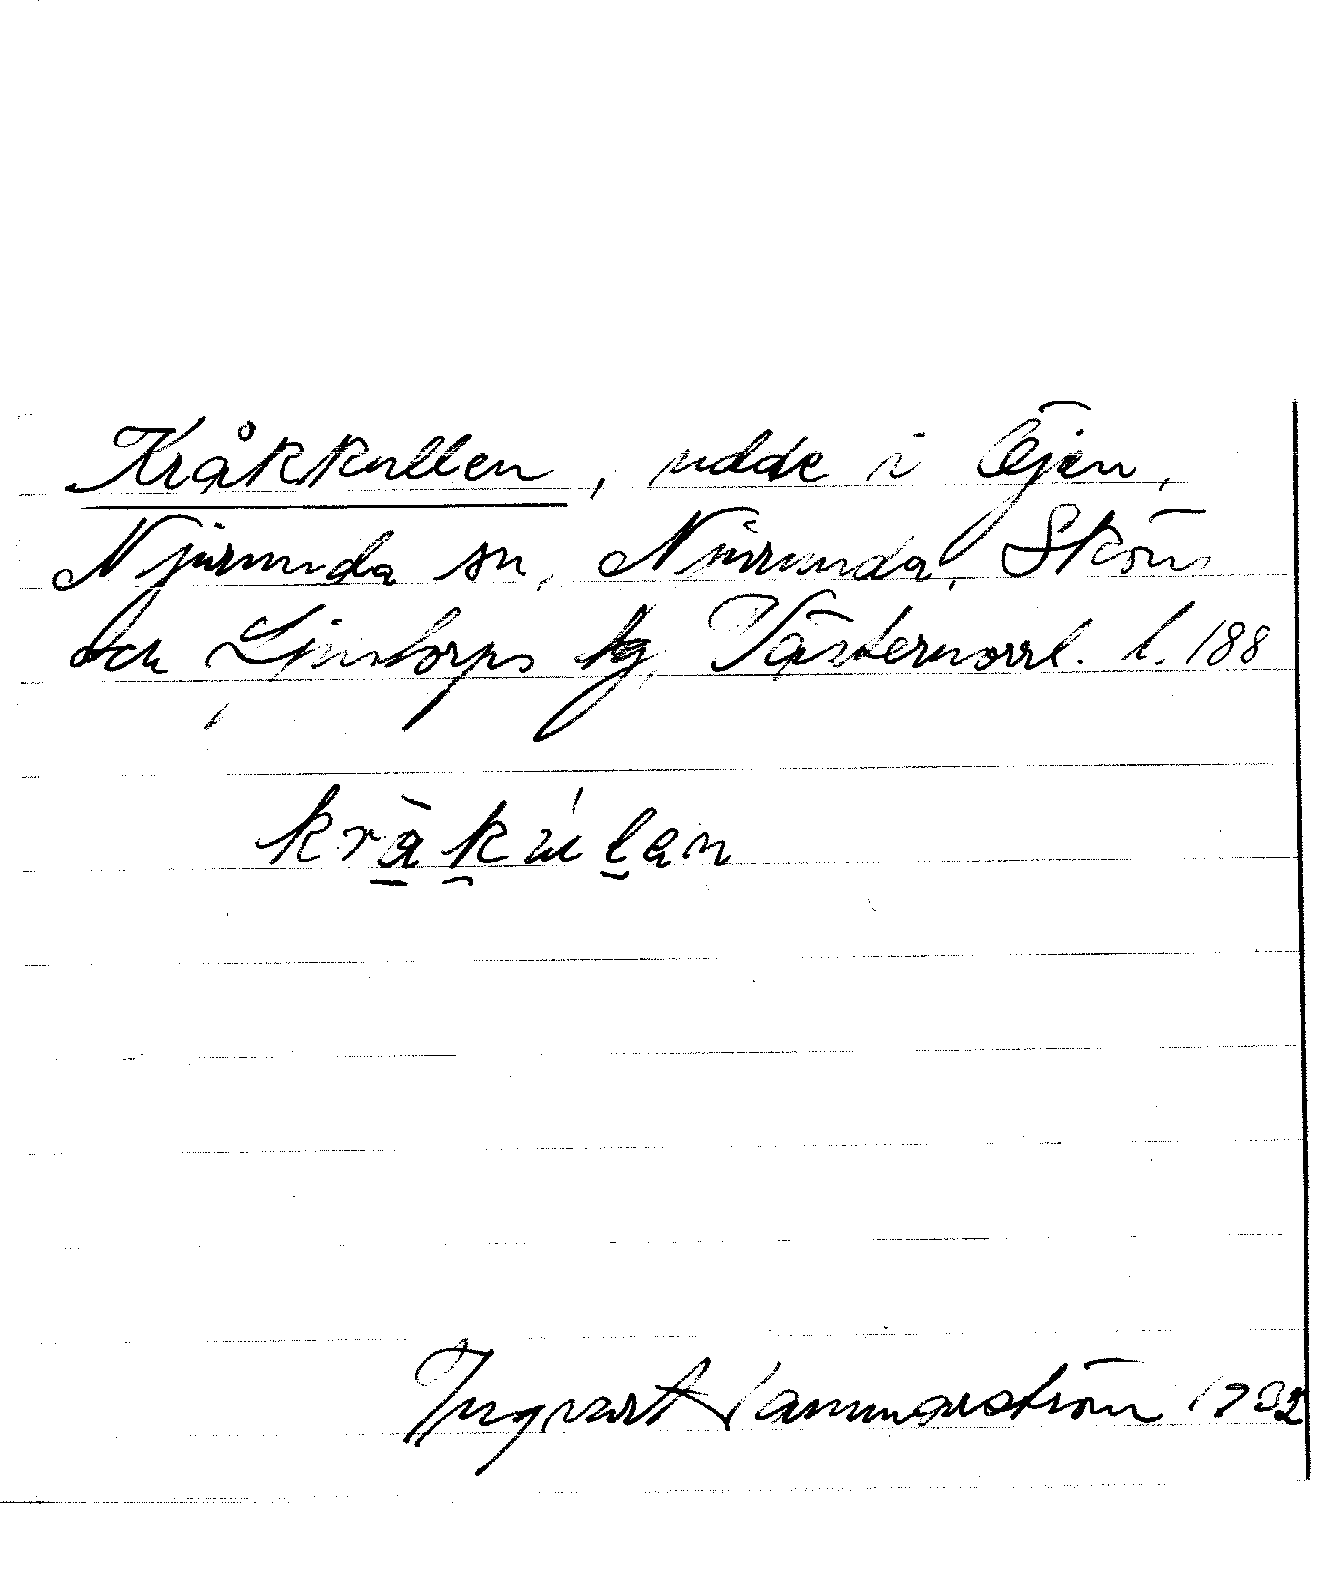 Kråkkullen, udde i Öjen,
Njurunda sn, Njurunda, Sköns
och Ljustorps tg, Västernorrl. l. 188
kràkúlan
Ingvart Hammarström 1932